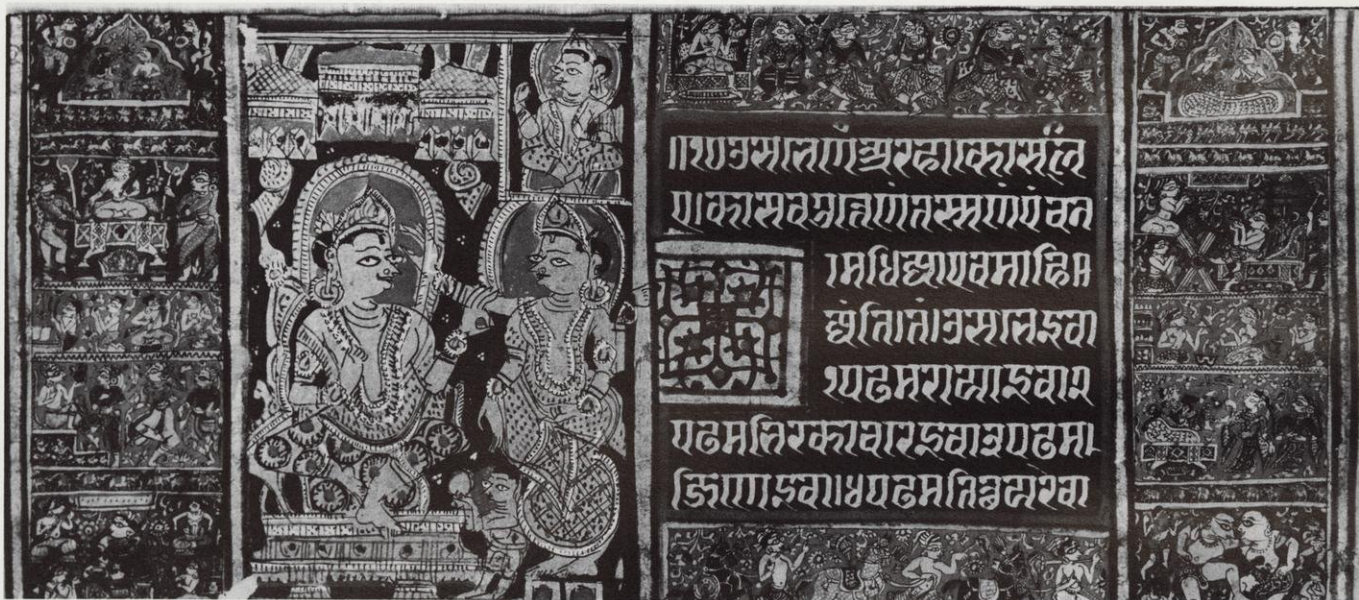 ॥२०५उसभेणंअरहाकोसलि
एकासवगुत्तेणंतस्सणंपंचना
मधिज्जाएवमाहिज्
जंतितं।उसभेइवा
१पढमरायाइवा२
पढमभिरकायरेइवा३पढम
जिणेइवा।४पढमतित्थयरेवा